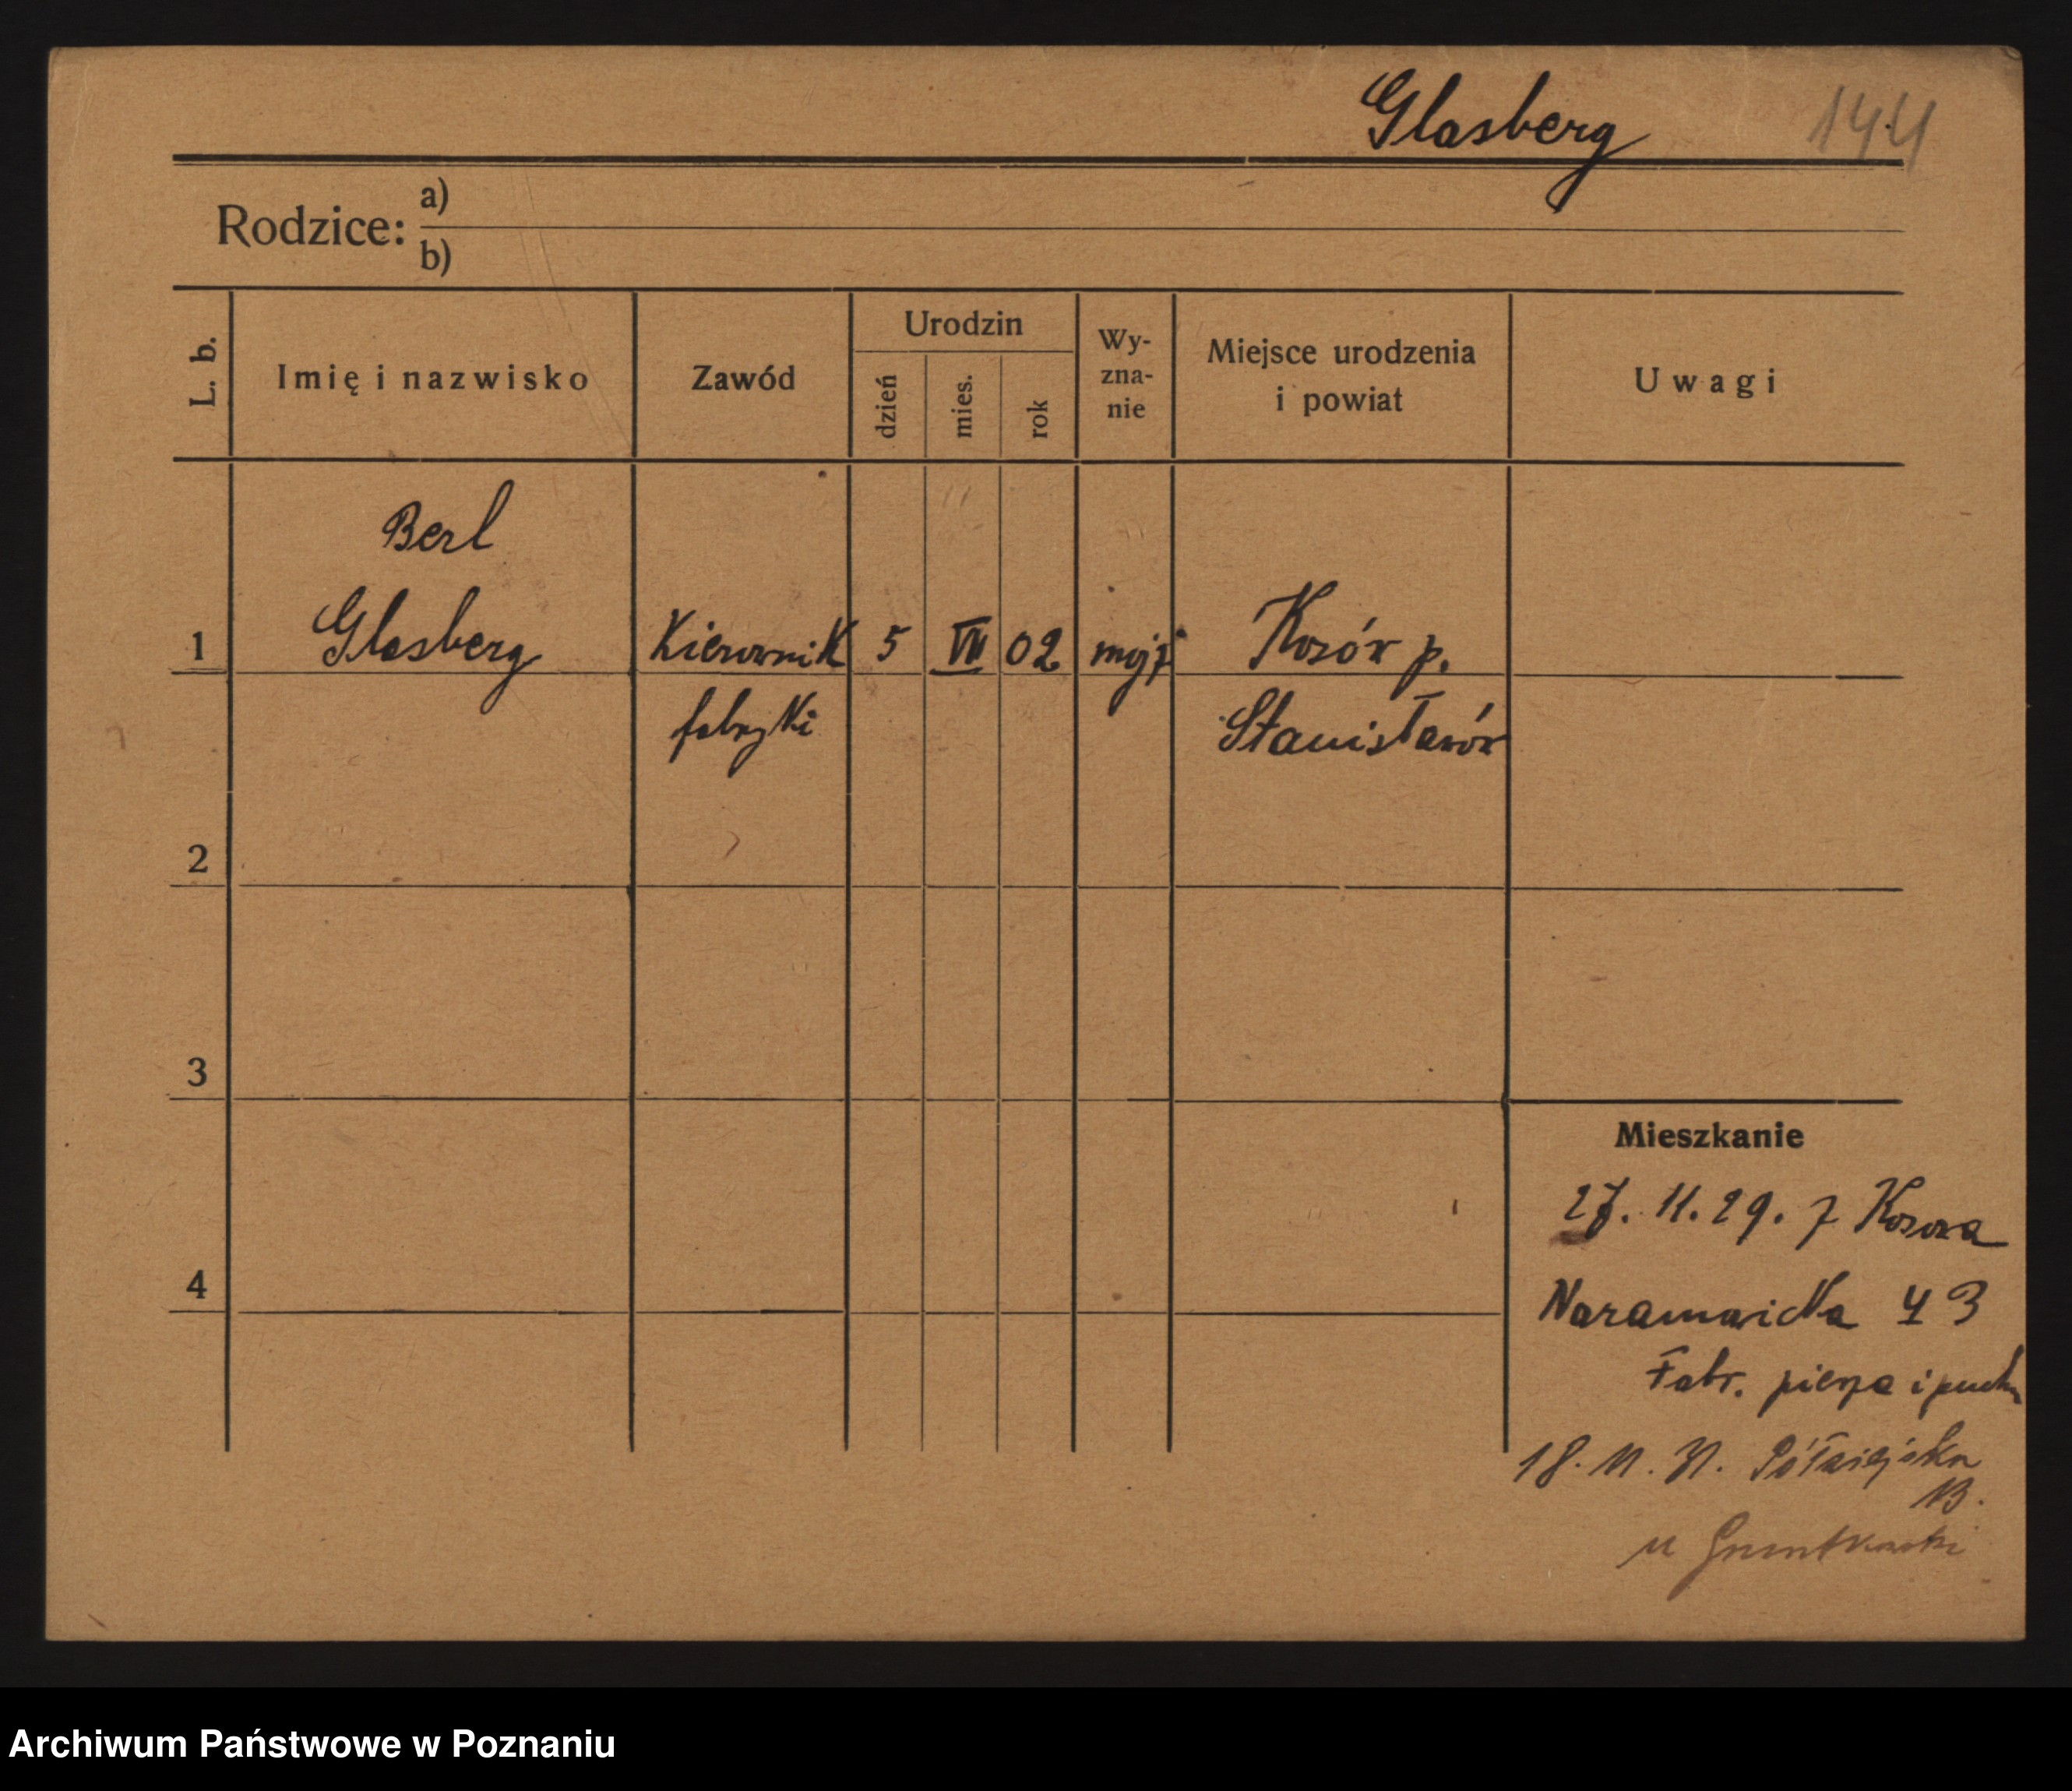 Glasberg 144
Rodzice: a)
b)
L. b. Imię i nazwisko Zawód Urodzin dzień mies. rok Wy-zna-nie Miejsce urodzenia i powiat Uwagi
Berl
1 Glasberg Kierownik 5 VII 02 mojż Kosów p.
fabryki Stanisławów
2
3
Mieszkanie
27. 11. 29. z Kosowa
4
Naramowicka 43
Fabr. pierza i puchu
18. 11. 31. Półwiejska
13.
u
Archiwum Państwowe w Poznaniu